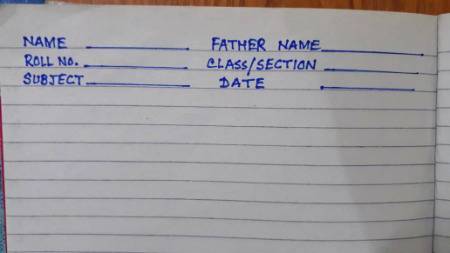 NAME __________ FATHER NAME__________
ROLL NO. __________ CLASS/SECTION __________
SUBJECT__________ DATE __________